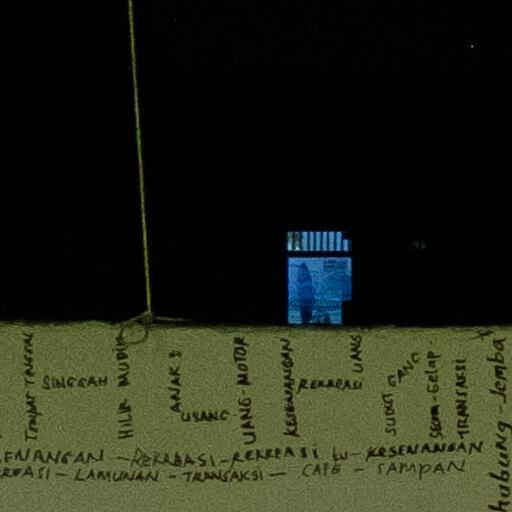 TEMPAT TANGAN
SINGGAH
HILIR MUDIK
ANAK2
USANG-
UANG-MOTOR
KESENANGAN
REKREASI
UANG
SUDUT GANG
SEMI-GELAP-
TRANSAKSI
hubung-Jemba
ENANGAN-REKREASI-REKREASI tu-KESENANGAN
REASI-LAMUNAN-TRANSAKSI-CAFE-SAMPAN